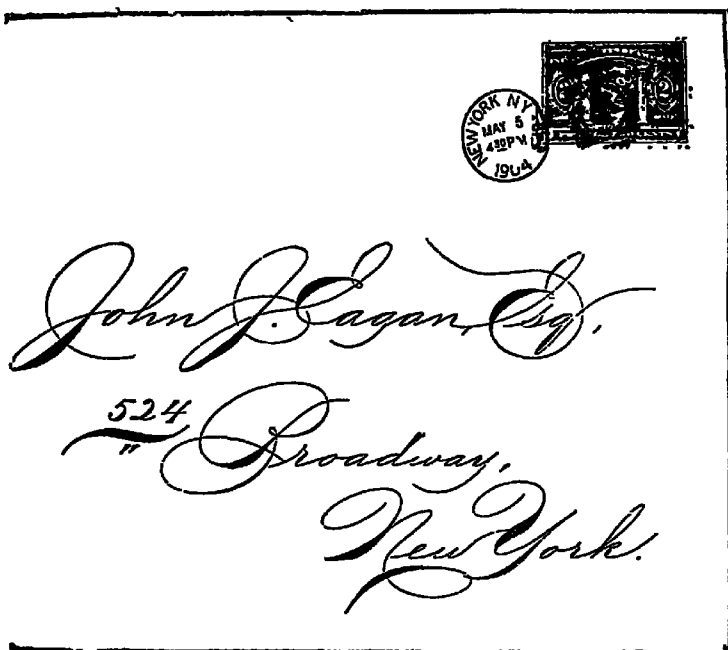 NEW YORK NY
MAY 5
4 30 PM
1904
2
John J. Eagan, Esq.,
524
"
Broadway,
New York.